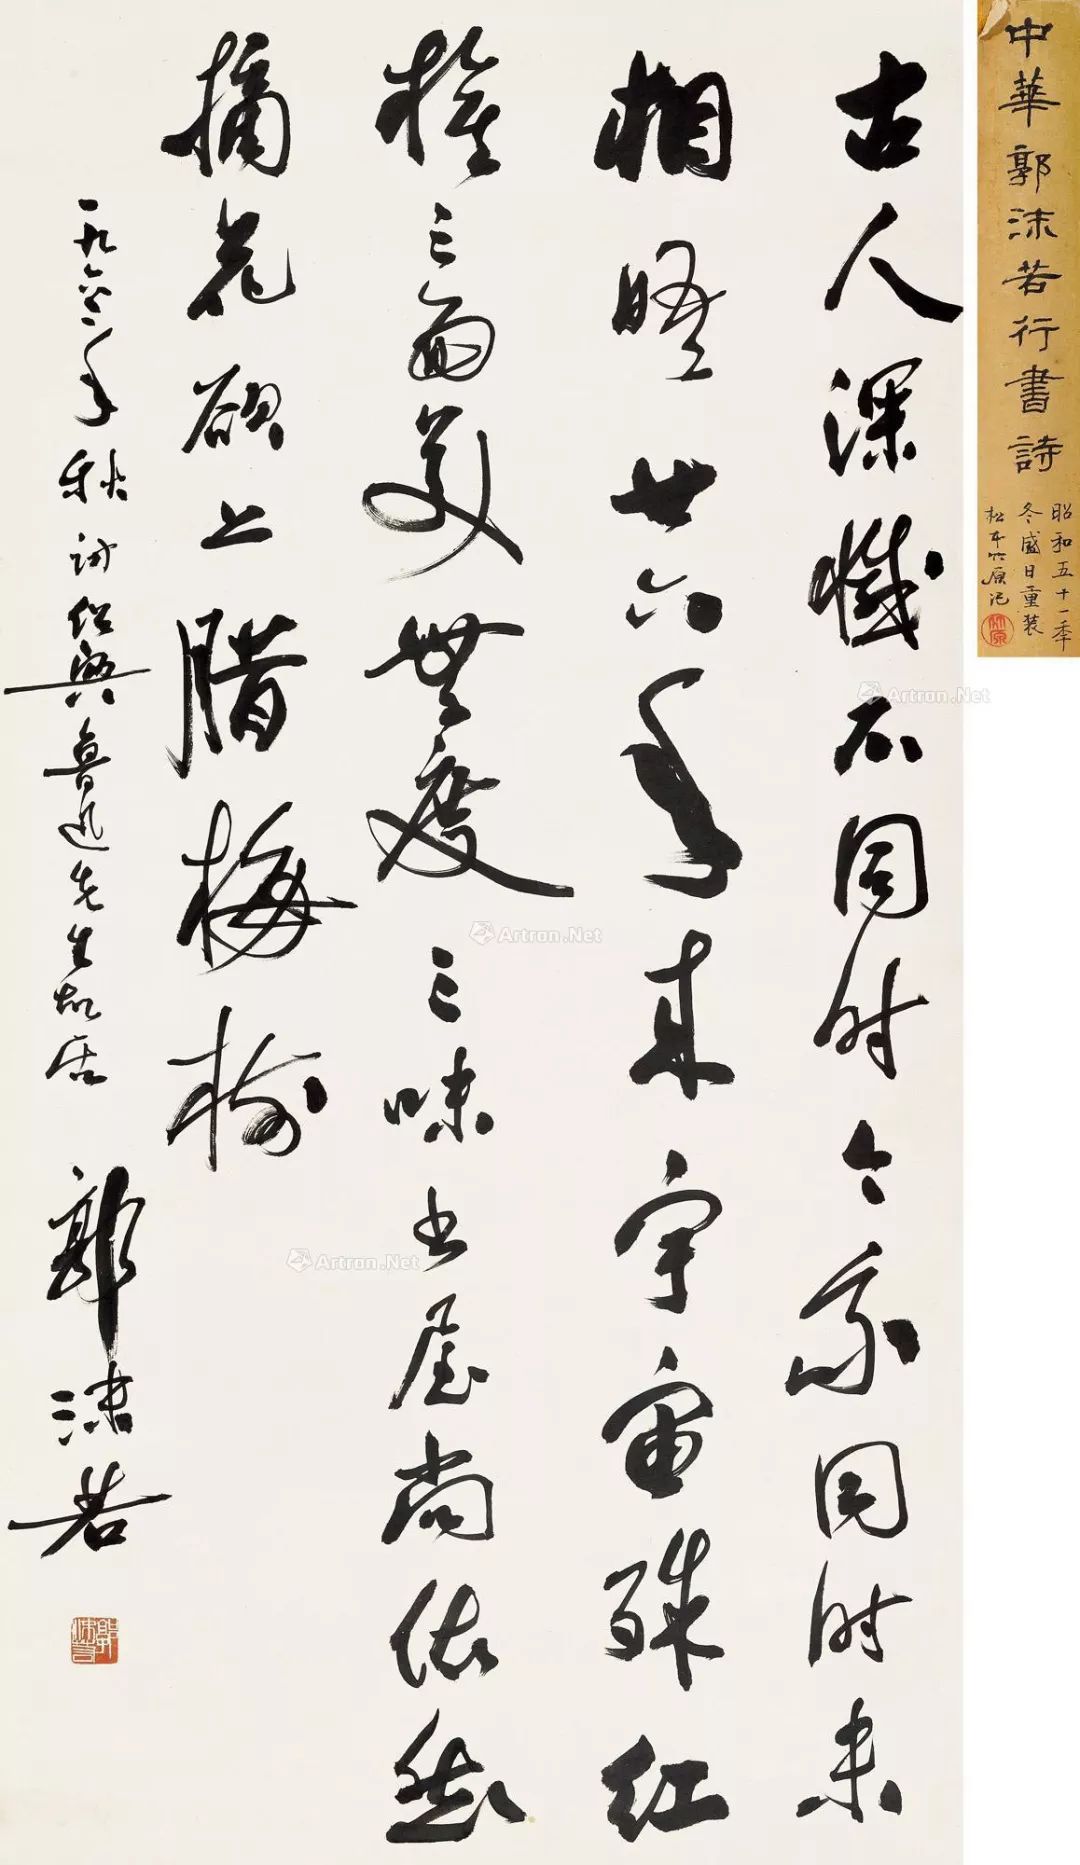 古人深憾不同时今我同时未
相晤廿六年来宇宙殊红
旗三面美無度三味书屋尚依然
摘花欲上腊梅树
一九六二年秋访绍興鲁迅先生故居 郭沫若
郭沫若
中華郭沫若行書詩
昭和五十一季
冬盛日重装
松本竹原记
竹原
Artron.Net
Artron.Net
Artron.Net